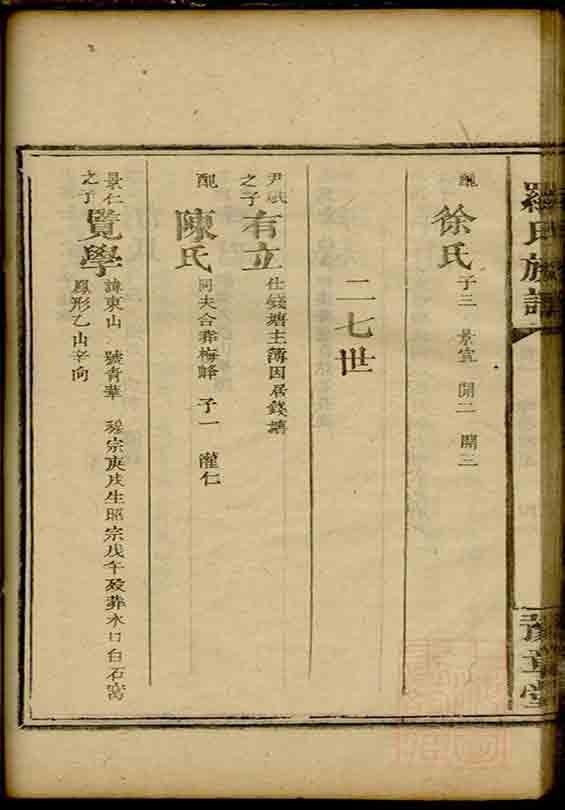 羅氏族譜
豫章堂
配 徐氏 子三 景宜 開二 開三
二七世
尹斌之子 有立 仕錢塘主薄因居錢塘
配 陳氏 同夫合葬梅峰 子一 灌仁
景仁之子 覽學 諱東山 號青華 穆宗庚戌生昭宗戊午歿葬水口白石窩
鳳形乙山辛向